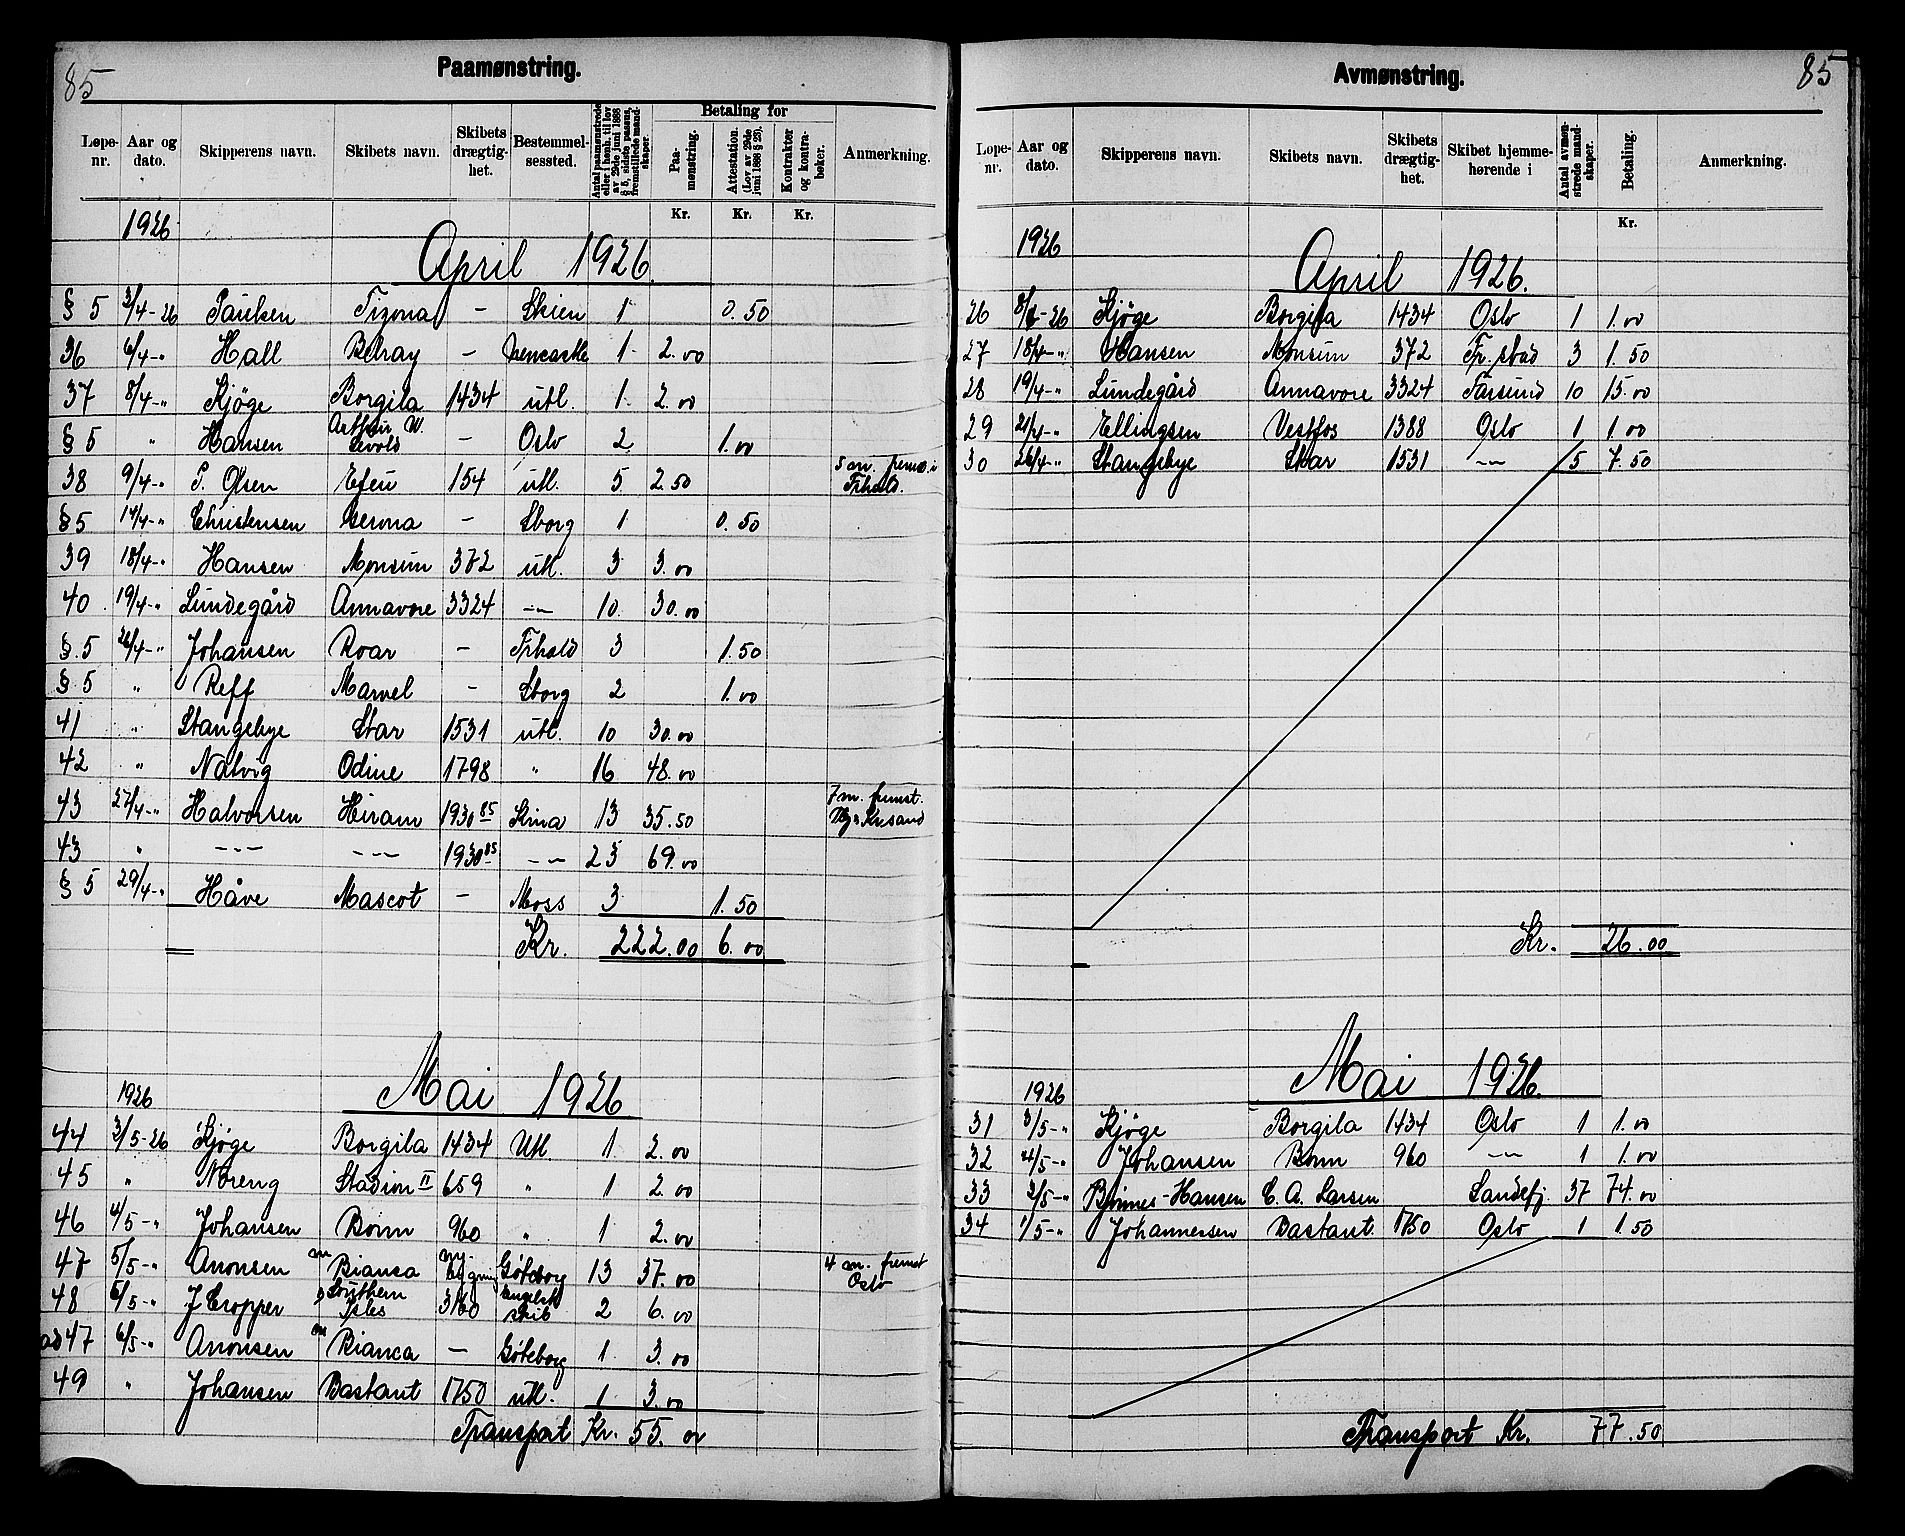 85
Paamønstring.
Løpe-nr. Aar og dato. Skipperens navn. Skibets navn. Skibets drægtig-het. Bestemmel-sessted. Antal paamønstrede eller i henh. til lov av 29de juni 1888 § 5, sidste passus, fremstillede mand-skaper. Betaling for Paa-mønstring. Attestation. (Lov av 29de juni 1888 § 23). Kontrakter og kontra-bøker. Anmerkning.
Kr. Kr. Kr.
1926
April 1926
§ 5 3/4-26 Paulsen Tizona - Skien 1 0.50
36 6/4-" Hall Belray - 1 2.00
37 8/4-" Kjøge Borgila 1434 utl. 1 2.00
§ 5 " Hansen Arthur W. Sewold - Oslo 2 1.00
38 9/4-" P. Olsen Efeu 154 utl. 5 2.50 5 m. frems. i Frhald.
§ 5 14/4-" Christensen Gerona - Sborg 1 0.50
39 18/4-" Hansen Monsun 372 utl. 3 3.00
40 19/4-" Lundegård Annavore 3324 -"- 10 30.00
§ 5 26/4-" Johansen Roar - Frhald 3 1.50
§ 5 " Reff Marvel - Sborg 2 1.00
41 " Stangebye Star 1531 utl. 10 30.00
42 " Nalvig Odine 1798 " 16 48.00
43 27/4-" Halvorsen Hiram 1930 85 Kina 13 35.50 7 m. fremst. Krsand
43 " -"- -"- 1930 85 -"- 23 69.00
§ 5 29/4-" Håve Mascot - Moss 3 1.50
Kr. 222.00 6.00
Mai 1926
1926
44 3/5-26 Kjøge Borgila 1434 Utl. 1 2.00
45 " Noreng Stadion II 659 " 1 2.00
46 4/5-" Johansen Bonn 960 " 1 2.00
47 5/5-" Aronsen m Bianca ny-bygning Göteborg 13 37.00 4 m. fremst Oslo
48 5/5-" J Cropper Southern Isles 3160 Engelsk skib 2 6.00
ad 47 6/5-" Aronsen m Bianca - Göteborg 1 3.00
49 " Johansen Bastant 1750 utl. 1 3.00
Transport Kr. 55.00
85
Avmønstring.
Løpe-nr. Aar og dato. Skipperens navn. Skibets navn. Skibets drægtig-het. Skibet hjemme-hørende i Antal avmøn-strede mand-skaper. Betaling. Anmerkning.
Kr.
1926
April 1926.
26 8/4-26 Kjøge Borgila 1434 Oslo 1 1.00
27 18/4-" Hansen Monsun 372 Fr.stad 3 1.50
28 19/4-" Lundegård Annavore 3324 Farsund 10 15.00
29 21/4-" Ellingsen Vestfos 1388 Oslo 1 1.00
30 26/4-" Stangebye Star 1531 -"- 5 7.50
Kr. 26.00
Mai 1926.
1926
31 3/5-" Kjøge Borgila 1434 Oslo 1 1.00
32 4/5-" Johansen Bonn 960 -"- 1 1.00
33 3/5-" Bjønnes-Hansen C. A. Larsen Sandefj. 37 74.00
34 1/5-" Johannessen Bastant 1750 Oslo 1 1.50
Transport Kr. 77.50